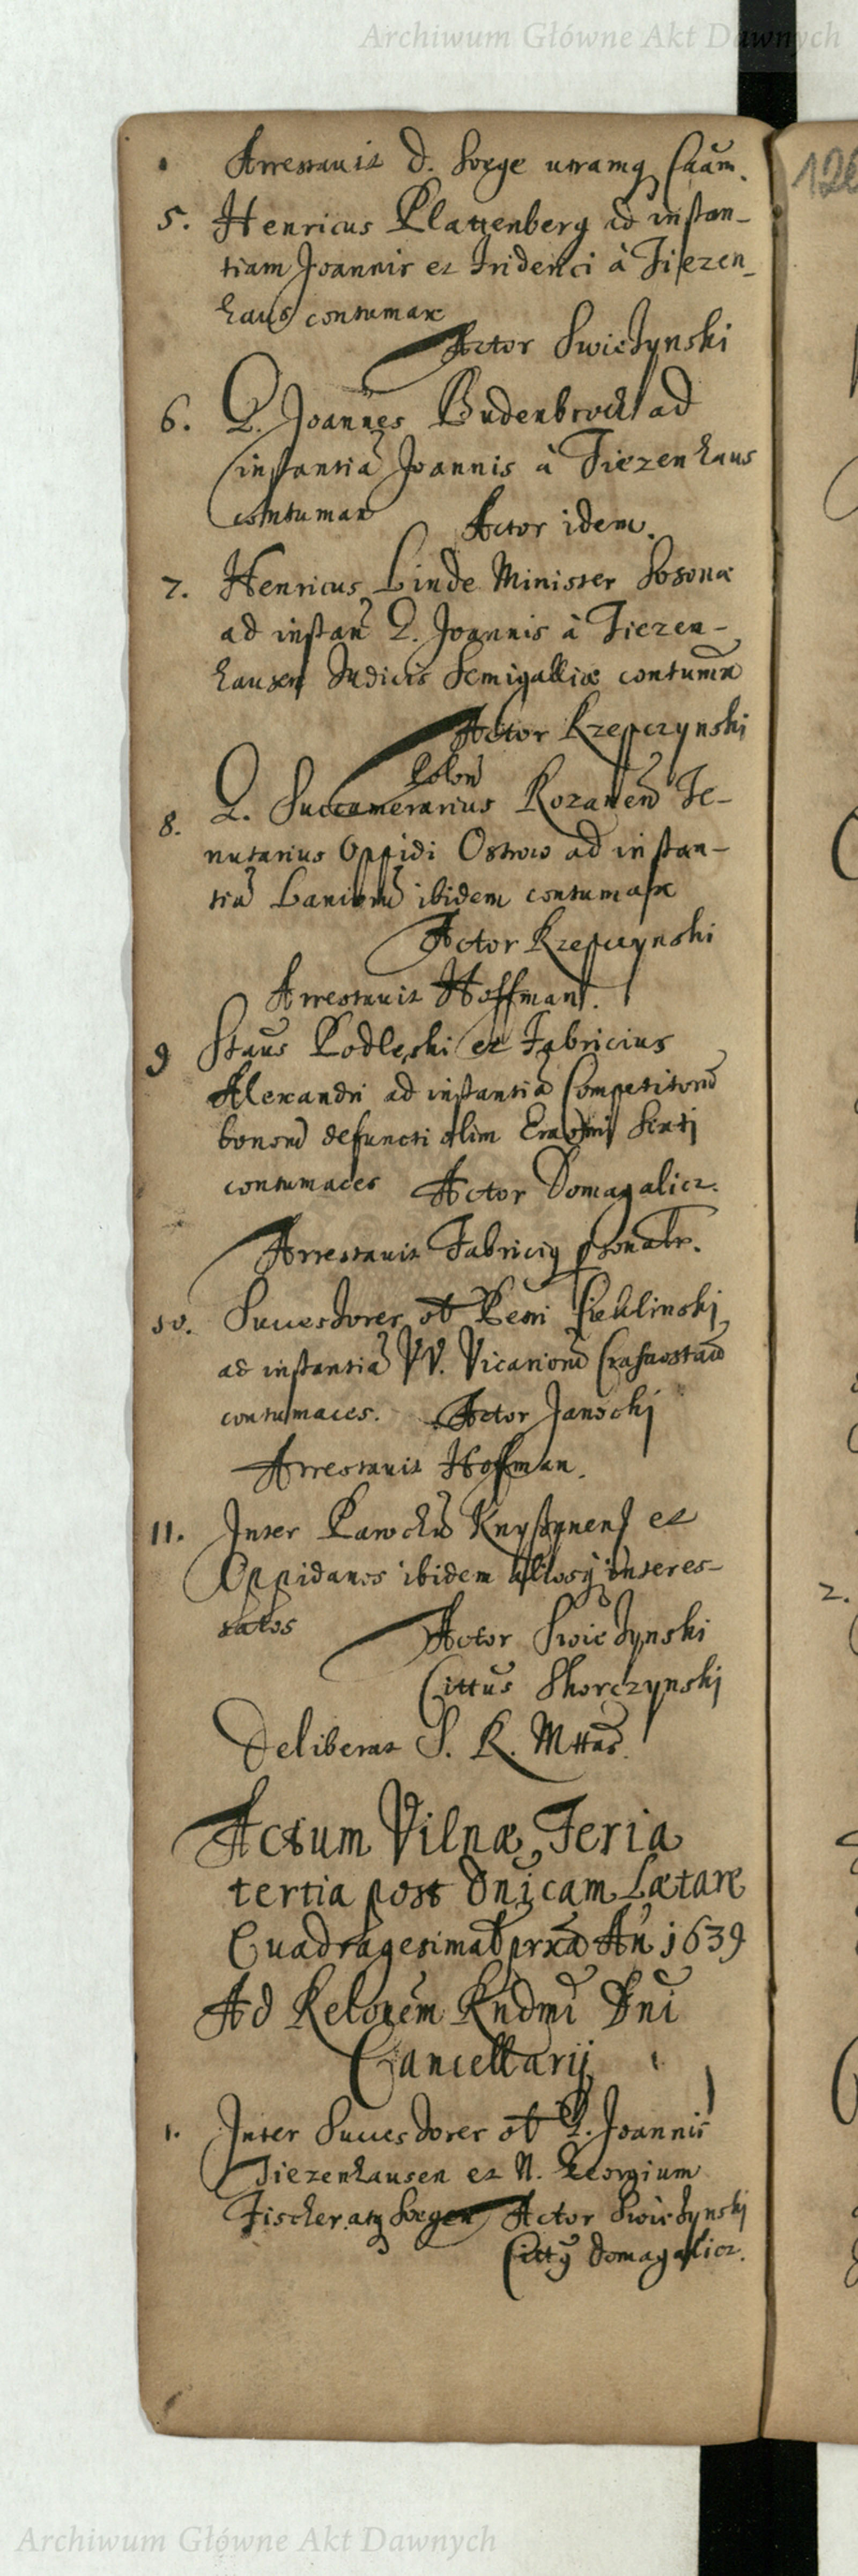 Archiwum Główne Akt Dawnych
126
Arrestauit d. Sorge utramq Caām.
5. Henricus Plattenberg ad instan-
tiam Joannis et Fridenci à Tiezen-
haus contumax
Actor Swieżynski
6. G. Joannes Budenbrock ad
instantiā Joannis à Tiezenhaus
contumax Actor idem.
7. Henricus Linde Minister Sosonæ
ad instan G. Joannis à Tiezen-
hausen Judicis Semigalliæ contumā
Actor Krzepczynski
Colon
8. G. Succamerarius Rozanen Te-
nutarius Oppidi Ostrow ad instan-
tiā Lanionū ibidem contumax
Actor Krzepczynski
Arrestauit Hoffman.
9 Staūs Podleski et Fabricius
Alexandri ad instantiā Competitorū
bonorū defuncti olim Erasmi Sixti
contumaces Actor Domagalicz.
Arrestauit Fabriciq psonalr.
10. Succesdores ot Petri Cieklinski
ad instantiā VV. Vicariorū Crasnostaw
contumaces. Actor Janoski
Arrestauit Hoffman.
11. Inter Parochū Knyszynens et
Oppidanos ibidem aliosq interes-
satos
Actor Swieżynski
Cittūs Skorczynski
Deliberat S. R. Mttas.
Actum Vilnæ, Feria
tertia post Dnicam Lætare
Quadragesimal prxā An 1639
Ad Relonem Rndmi Dni
Cancellarij
1. Inter Succesdores ot G. Joannis
Tiezenhausen et N. Georgium
Fischer atq Sorgen Actor Swieżynski
Cittq Domagalicz.
2.
Archiwum Główne Akt Dawnych